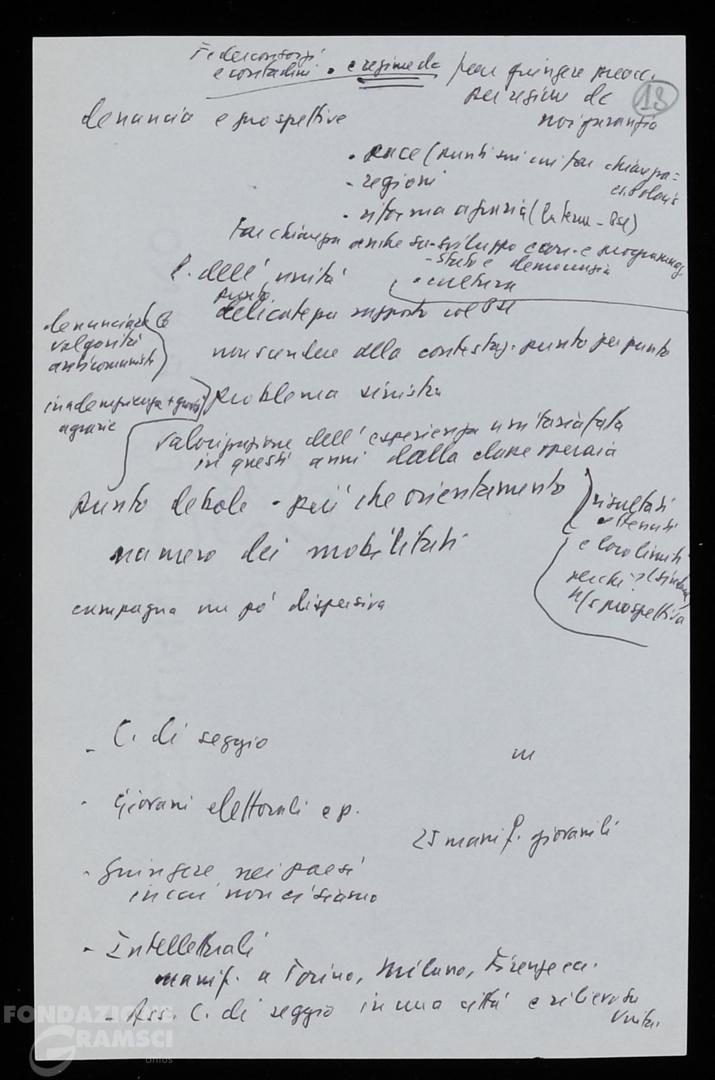 Federconsorzi
e contadini • e regime dc
per regime dc
18
denuncia e prospettive
noi garanzia
• pace (punti su cui far chiarezza =
- regioni
- riforma agraria (
far chiarezza anche su sviluppo econ. e programmaz.
- stato e democrazia
• cultura
P. dell'unità
punto
delicato per rapporto col PSI
denunciare
volgarità
anticomunisti
non scendere alla contestaz. punto per punto
problema sinistra
inadempienza +
agrarie
valorizzazione dell'esperienza unitaria fatta
in questi anni dalla classe operaia
punto debole - più che orientamento
numero dei mobilitati
risultati
ottenuti
e loro limiti
n/s prospettiva
campagna un po' dispersiva
- C. di seggio
m
- Giovani elettorali e p.
25 manif. giovanili
- Giungere nei paesi
in cui non ci siamo
- Intellettuali
manif. a Torino, Milano, Firenze ecc.
- Ass. C. di seggio in una città e rilievo su
Unità.
FONDAZIONE
GRAMSCI
onlus